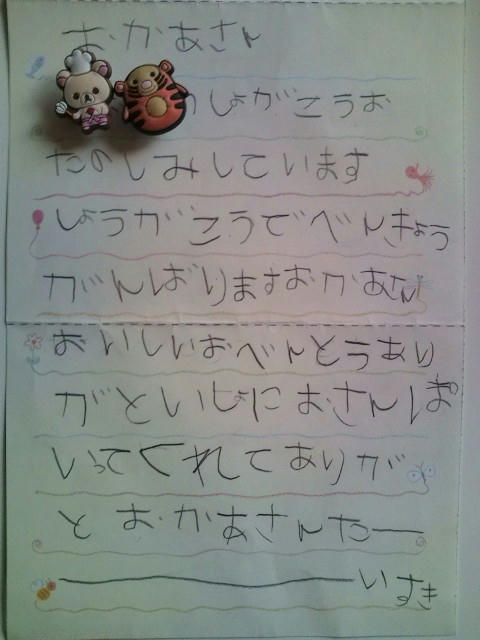 おかあさん
しょがこうお
たのしみしています
しょうがこうでべんきょう
がんばりますおかあさん
おいしいおべんとうあり
がといしょにおさんぽ
いってくれてありが
とおかあさんだー
ーいすき